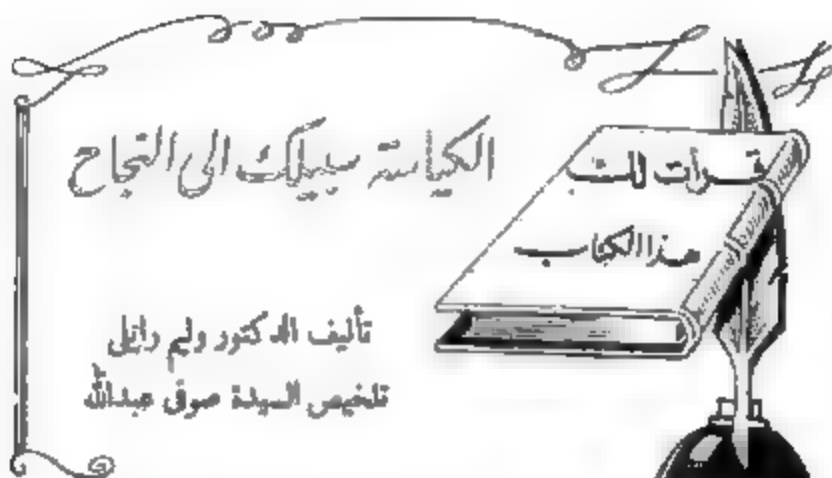 قرأت لك
هذا الكتاب
الكياسة سبيلك الى النجاح
تأليف الدكتور وليم
تلخيص السيدة صوفى عبدالله